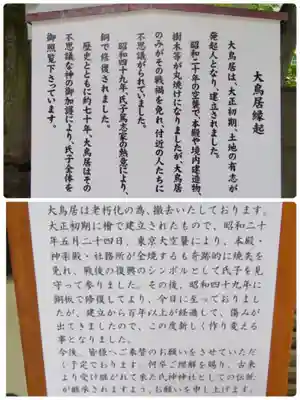 大鳥居縁起
大鳥居は、大正初期、土地の有志が
発起人となり、建立されました。
昭和二十年の空襲で本殿や境内建造物、
樹木等が丸焼けになりましたが、大鳥居
のみがその戦禍を免れ、付近の人たちに
不思議がられていました。
昭和四十九年、氏子篤志家の熱意により、
銅で修復されました。
歴史とともに約七十年、大鳥居はその
不思議な神の御加護により、氏子全体を
御照覧下さっています。
大鳥居は老朽化の為、撤去いたしております。
大正初期に檜で建立されたもので、昭和二十
年五月二十四日、東京大空襲により、本殿・
神楽殿・社務所が全焼するも奇跡的に焼失を
免れ、戦後の復興のシンボルとして氏子を見
守って参りました。その後、昭和四十九年に
銅板で修復してより、今日に至っておりまし
たが、建立から百年以上が経過して、傷みが
出てきましたので、この度新しく作り変える
事となりました。
今後、皆様へご奉賛のお願いをさせていただ
く予定でおります。何卒ご理解を賜り、古来
より受け継がれて来た氏神神社としての伝統
が継承されますよう、お願いを申し上げます。